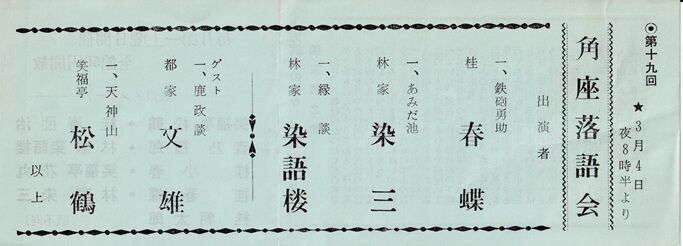 ◉第十九回
★3月4日
夜8時半より
角座落語会
出演者
一、鉄砲勇助
桂 春蝶
一、あみだ池
林家 染三
一、縁談
林家 染語楼
ゲスト
一、鹿政談
都家 文雄
一、天神山
笑福亭 松鶴
以上